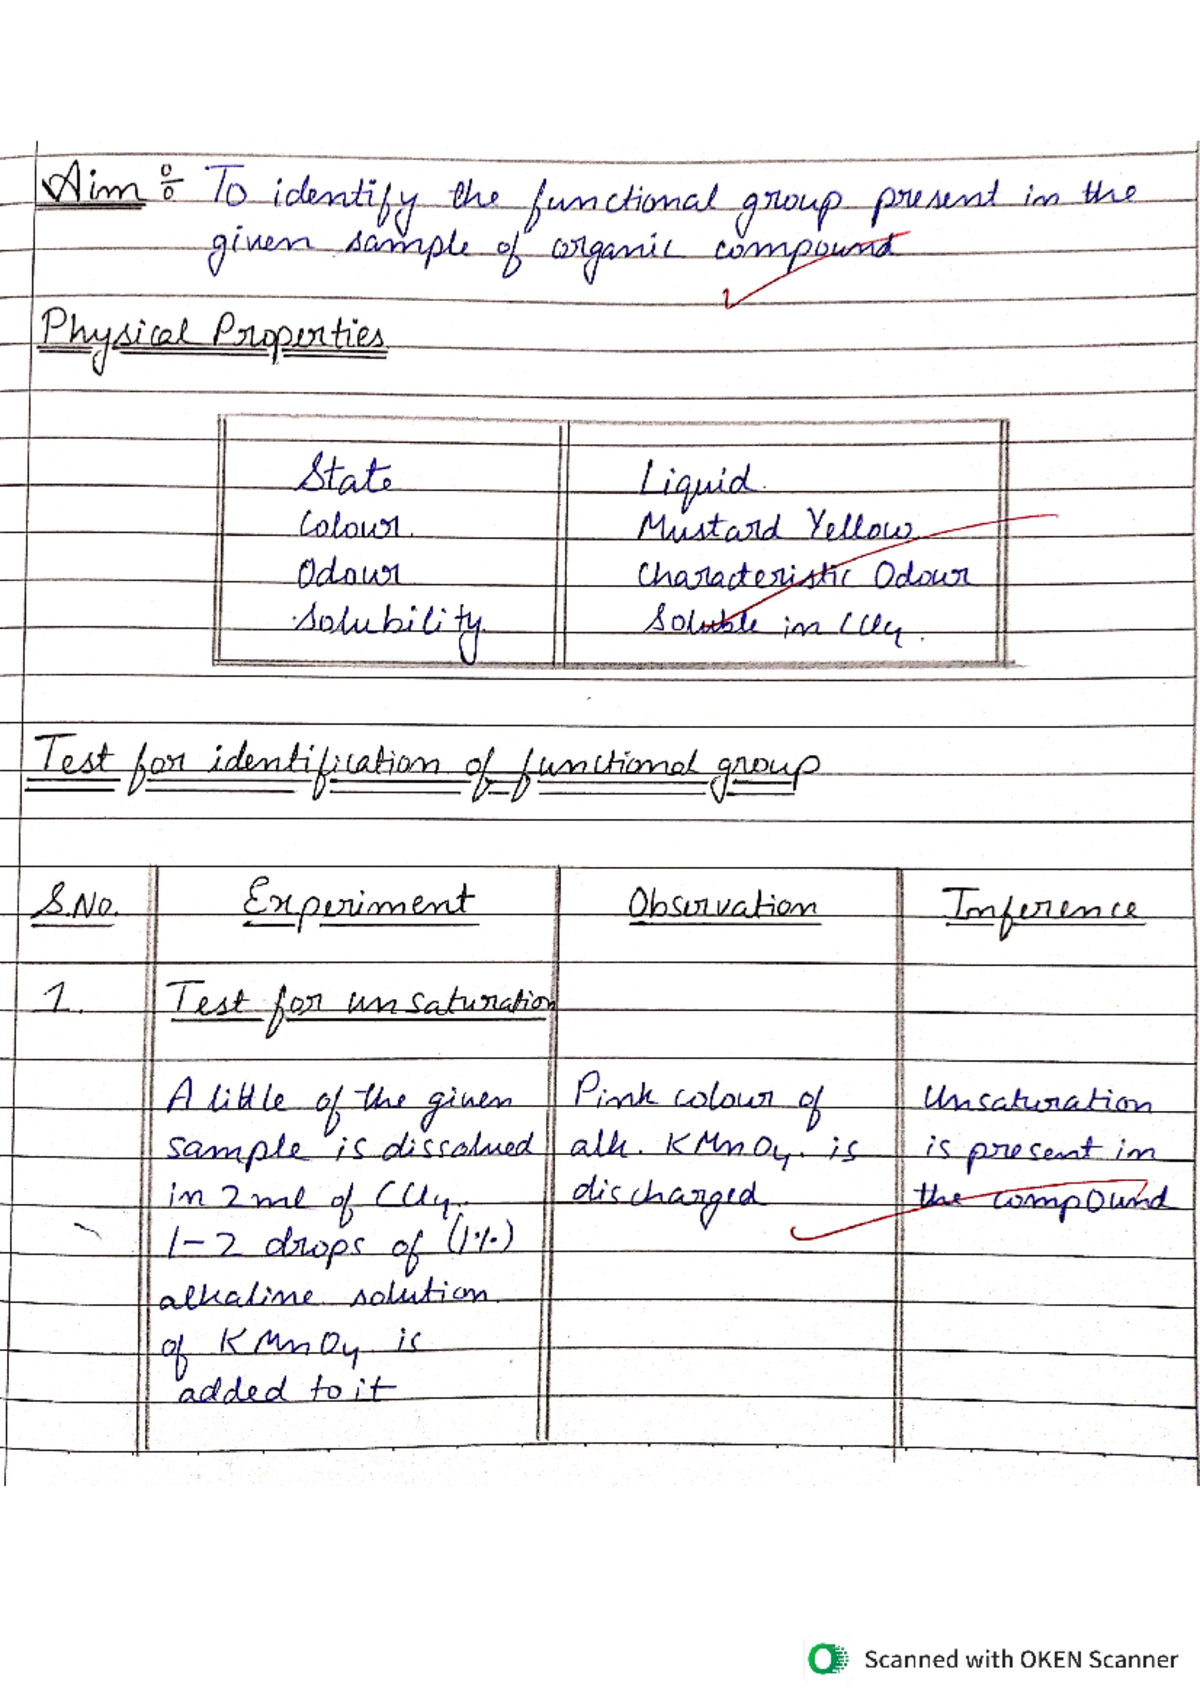 Aim ÷ To identify the functional group present in the
given sample of organic compound
Physical Properties
State Liquid.
Colour. Mustard Yellow
Odour Characteristic Odour
Solubility Soluble in CCl4.
Test for identification of functional group
S.No. Experiment Observation Inference
1. Test for unsaturation
A little of the given Pink colour of Unsaturation
sample is dissolved alk. KMnO4. is is present in
in 2 ml of CCl4. discharged the compound
1-2 drops of (1%)
alkaline solution
of KMnO4 is
added to it
Scanned with OKEN Scanner